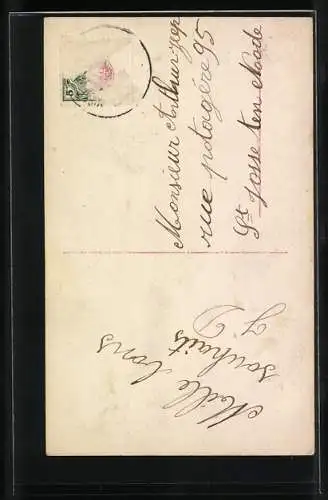 Mille bons
souhaits
g. D
Monsieur Arthur
rue potagère 95
St Josse ten Noode
5